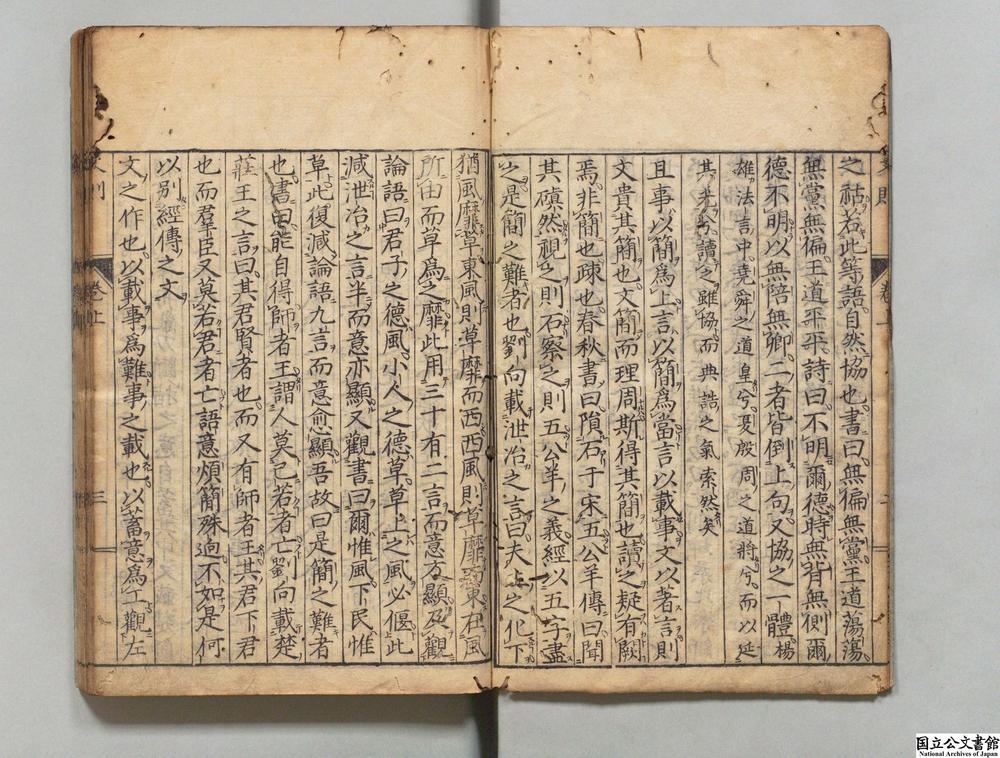 之祜若此等語自然協也書曰無偏無黨王道蕩蕩
無黨無偏王道平平詩曰不明爾德時無背無側爾
德不明以無陪無卿二者皆倒上句又協之一體楊
雄法言中堯舜之道皇兮夏殷周之道將兮而以延
其光兮讀之雖協而典誥之氣索然矣
且事以簡爲上言以簡爲當言以載事文以著言則
文貴其簡也文簡而理周斯得其簡也讀之疑有闕
焉非簡也疎也春秋書曰隕石于宋五公羊傳曰聞
其磌然視之則石察之則五公羊之義經以五字盡
之是簡之難者也劉向載泄冶之言曰夫上之化下
猶風靡草東風則草靡而西西風則草靡而東在風
所由而草爲之靡此用三十有二言而意方顯及觀
論語曰君子之德風小人之德草草上之風必偃此
減泄冶之言半而意亦顯又觀書曰爾惟風下民惟
草此復減論語九言而意愈顯吾故曰是簡之難者
也書曰能自得師者王謂人莫己若者亡劉向載楚
莊王之言曰其君賢者也而又有師者王其君下君
也而羣臣又莫若君者亡語意煩簡殊逈不如是何
以別經傳之文
文之作也以載事爲難事之載也以蓄意爲工觀左
文則
卷上
三
国立公文書館
National Archives of Japan